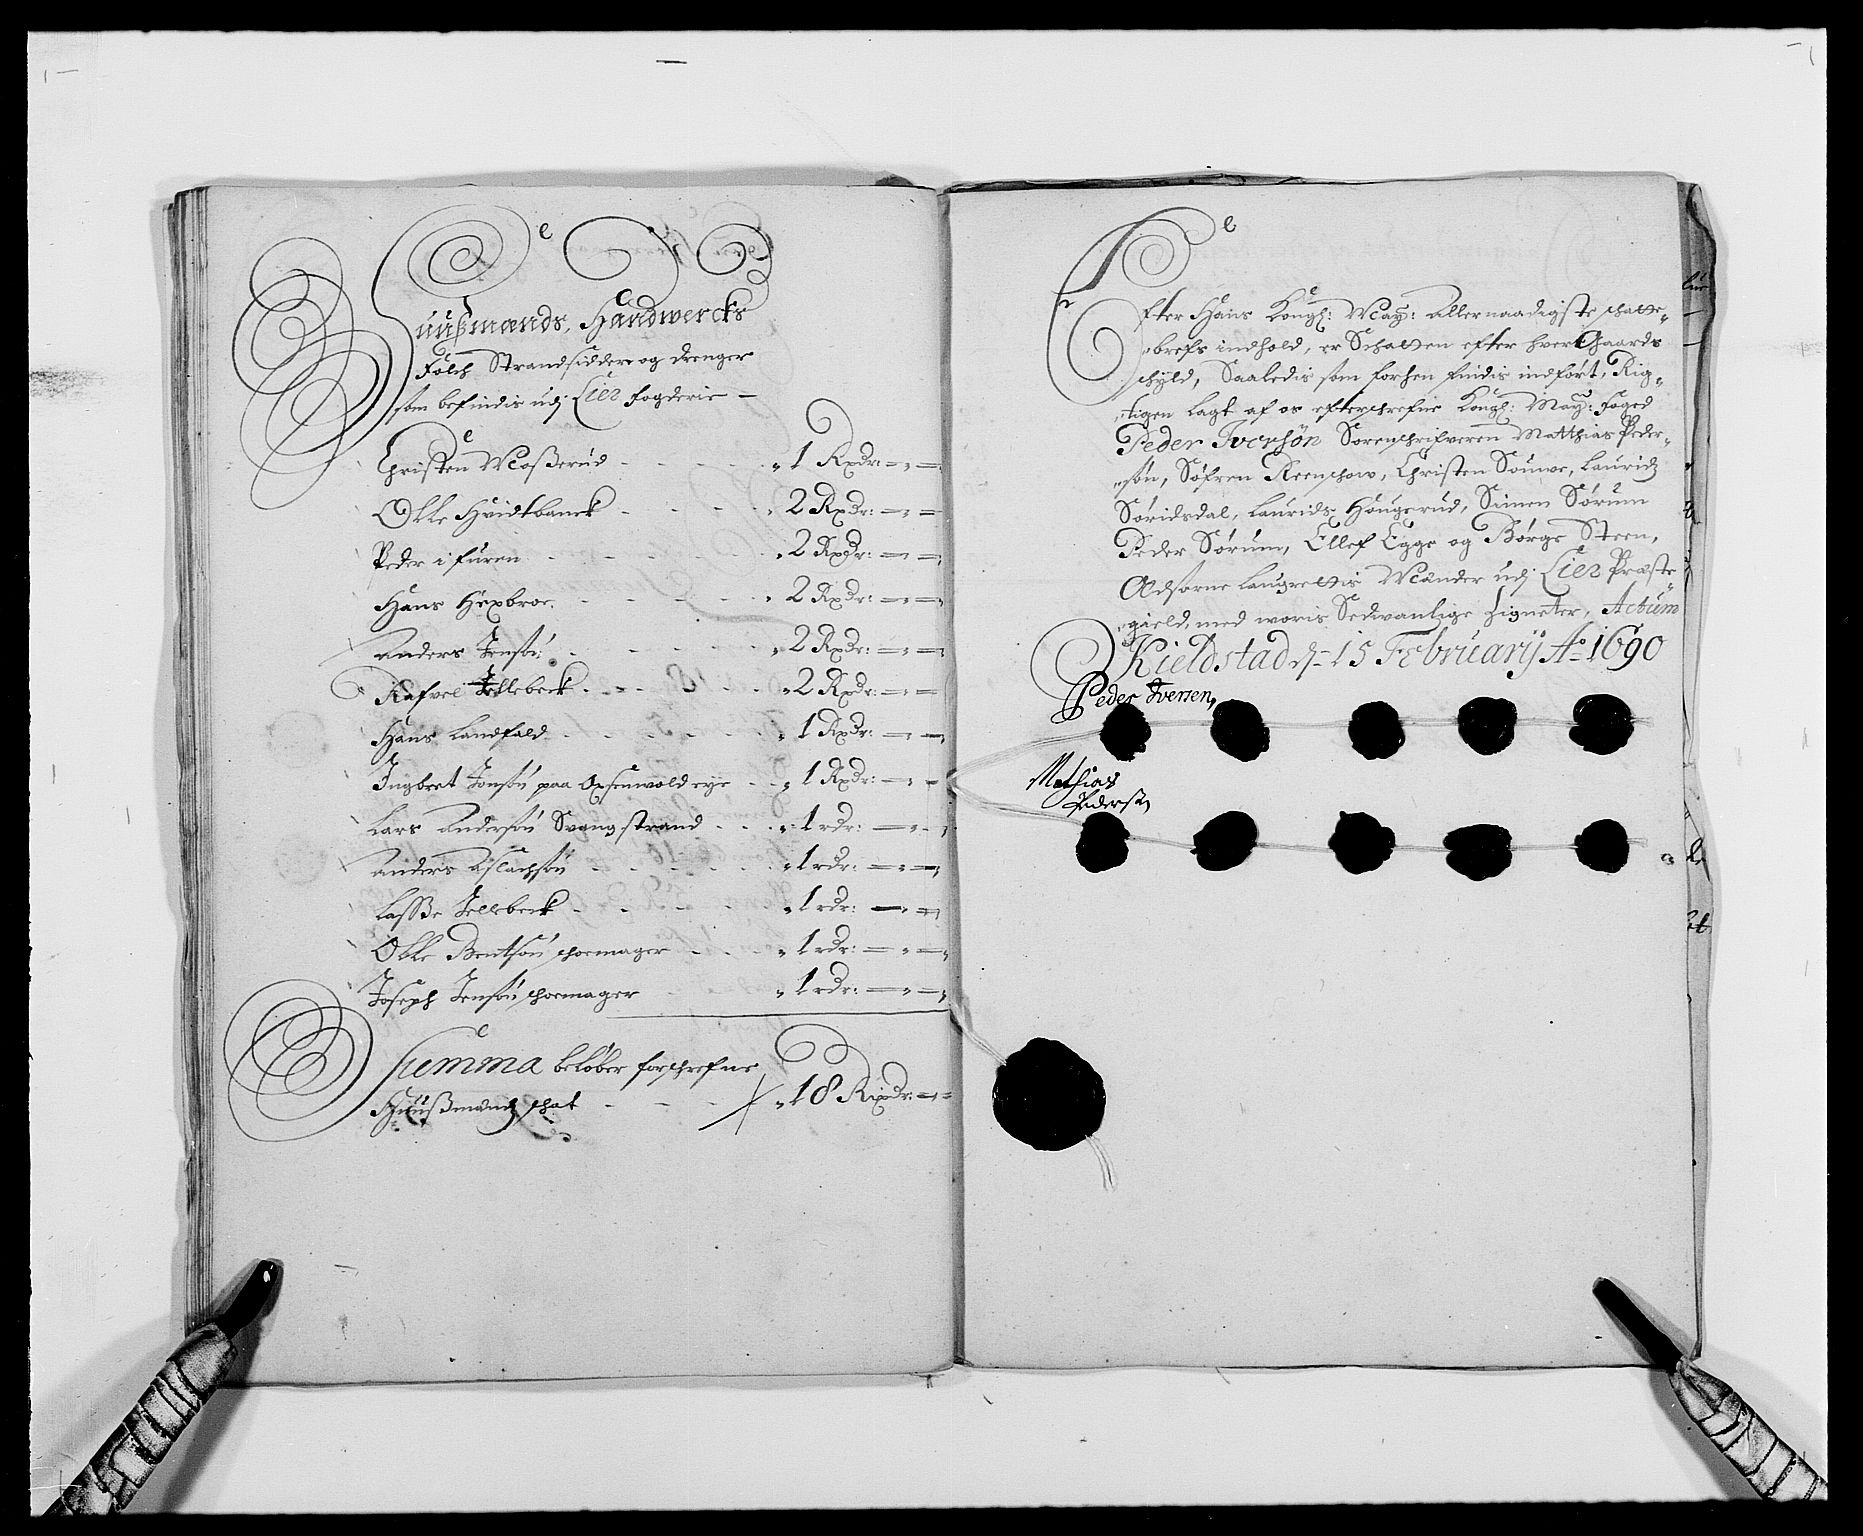 Huußmænds, Handwercks
Folch Strandsiddere og drenger
som befindis udj Lier fogderie —
Christen Moßerud - - - - „ 1 Rxdr: — „ —
Olle Hvidtbanck - - - „ 2 Rxdr: — „ —
Peder i furen - - - - „ 2 Rxdr: — „ —
Hans Hexbroe - - - - „ 2 Rxdr: — „ —
Anders Jensøn - - - - „ 2 Rxdr: — „ —
Rafvel Jellebeck - - - - „ 2 Rxdr: — „ —
Hans Landfald - - - - „ 1 Rxdr: — „ —
Ingbret Jonsøn paa Oxsenwold eye - - „ 1 Rxdr: — „ —
Lars Andersøn Svangstrand - - - „ 1 rdr: — „ —
Anders Aslachsøn - - - - „ 1 rdr: — „ —
Lasse Jellebeck - - - - „ 1 rdr: — „ —
Olle Bentsøn schoemager - - - „ 1 rdr: — „ —
Joseph Jensøn schoemager - - - „ 1 rdr: — „ —
Summa beløber forschrefne
Huußmænds schat - - - „ 18 Rixdr: — „ —
Efter Hans Kongl: May: allernaadigste schatte-
brefs indhold, er Schatten efter hver Gaards
schyld, Saaledis som forhen findis indført, Rig-
tigen lagt af os efterschrefne Kongl: May: Foged
Peder Iversøn Sorenschrifveren Matthias Peder-
søn, Søfren Reenschow, Christen Souwe, Lauridz
Søridsdal, Laurids Hougerud, Simen Sørum
Peder Sørum, Ellef Egge og Børge Steen,
Edsorne Laugrettis Mænder udj Lier Præste-
gield, med woris Sedwanlige Zigneter, Actum
Kieldstad d: 15 Februarij Ao 1690
Peder Iversen,
Mathias
Pedersøn